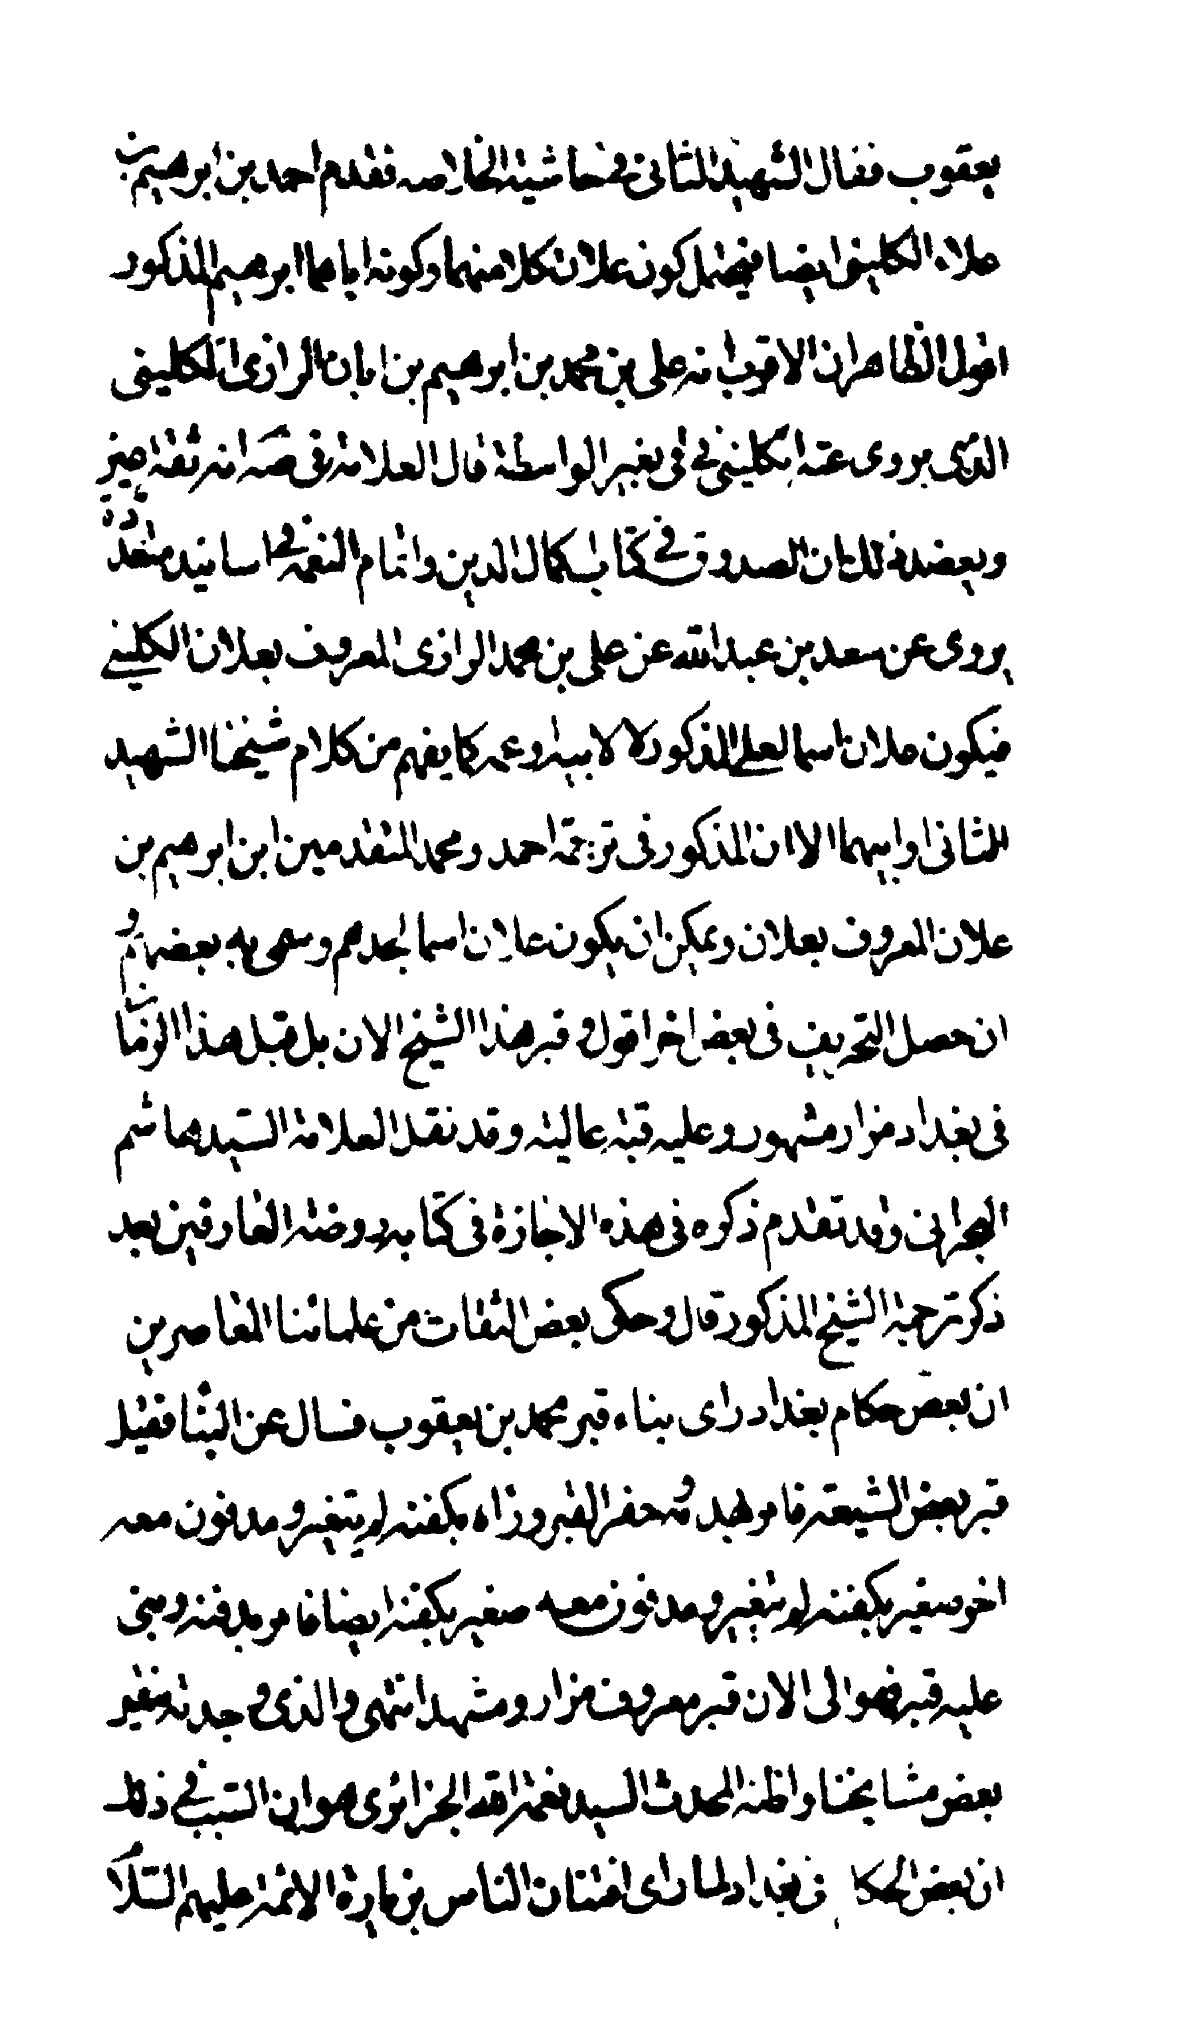 يعقوب فقال الشهيد الثاني في حاشية الخلاصه فقدم احمد بن ابرهيم بن
علان الكليني ايضا فيحتمل كون علان كلا منهما وكونه اباهما ابرهيم المذكور
اقول الظاهر ان الاقرب انه علي بن محمد بن ابرهيم بن ابان الرازى الكليني
الذى يروى عنه الكليني في في بغير الواسطة قال العلامة في صه انه ثقة عين
ويعضد ذلك ان الصدوق في كتاب اكمال الدين واتمام النعمة في اسانيد متعددة
يروى عن سعد بن عبد الله عن علي بن محمد الرازى المعروف بعلان الكليني
فيكون علان اسما لعلي المذكور لا لابيه وعمه كما يفهم من كلام شيخنا الشهيد
الثاني او ابيهما الا ان المذكور في ترجمة احمد ومحمد المتقدمين ابن ابرهيم بن
علان المعروف بعلان ويمكن ان يكون علان اسما لجدهم وسمى به بعضهم و
ان حصل التحريف في بعض اخر اقول وقبر هذا الشيخ الان بل قبل هذا الزمان
في بغداد مزار مشهور وعليه قبة عالية وقد نقل العلامة السيد هاشم
البحراني وقد تقدم ذكره في هذه الاجازة في كتابه روضة العارفين بعد
ذكر ترجمة الشيخ المذكور قال وحكى بعض الثقات من علمائنا المعاصرين
ان بعض حكام بغداد راى بناء قبر محمد بن يعقوب فسال عن البنا فقيل
قبر بعض الشيعة فامر بهدمه وحفر القبر وراه بكفنه لم يتغير ومدفون معه
اخر صغير بكفنه لم يتغير ومدفون معه صغير بكفنه ايضا فامر بدفنه وبنى
عليه قبة فهو الى الان قبر معروف مزار ومشهد انتهى والذى وجدته بخط
بعض مشايخنا واظنه المحدث السيد نعمة الله الجزائرى هو ان السبب في ذلك
ان بعض الحكا في بغداد لما راى افتتان الناس بزيارة الائمة عليهم السلام